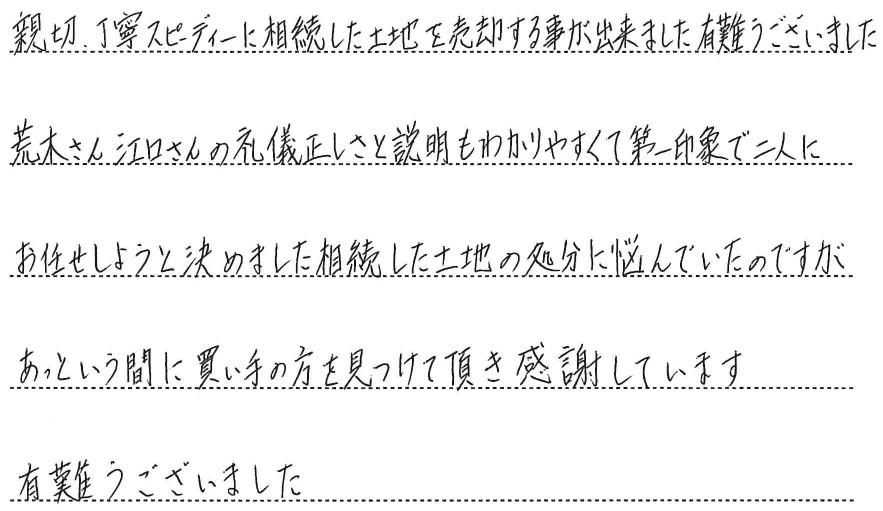 親切、丁寧スピーディーに相続した土地を売却する事が出来ました有難うございました
荒木さん江口さんの礼儀正しさと説明もわかりやすくて第一印象で二人に
お任せしようと決めました相続した土地の処分に悩んでいたのですが
あっという間に買い手の方を見つけて頂き感謝しています
有難うございました